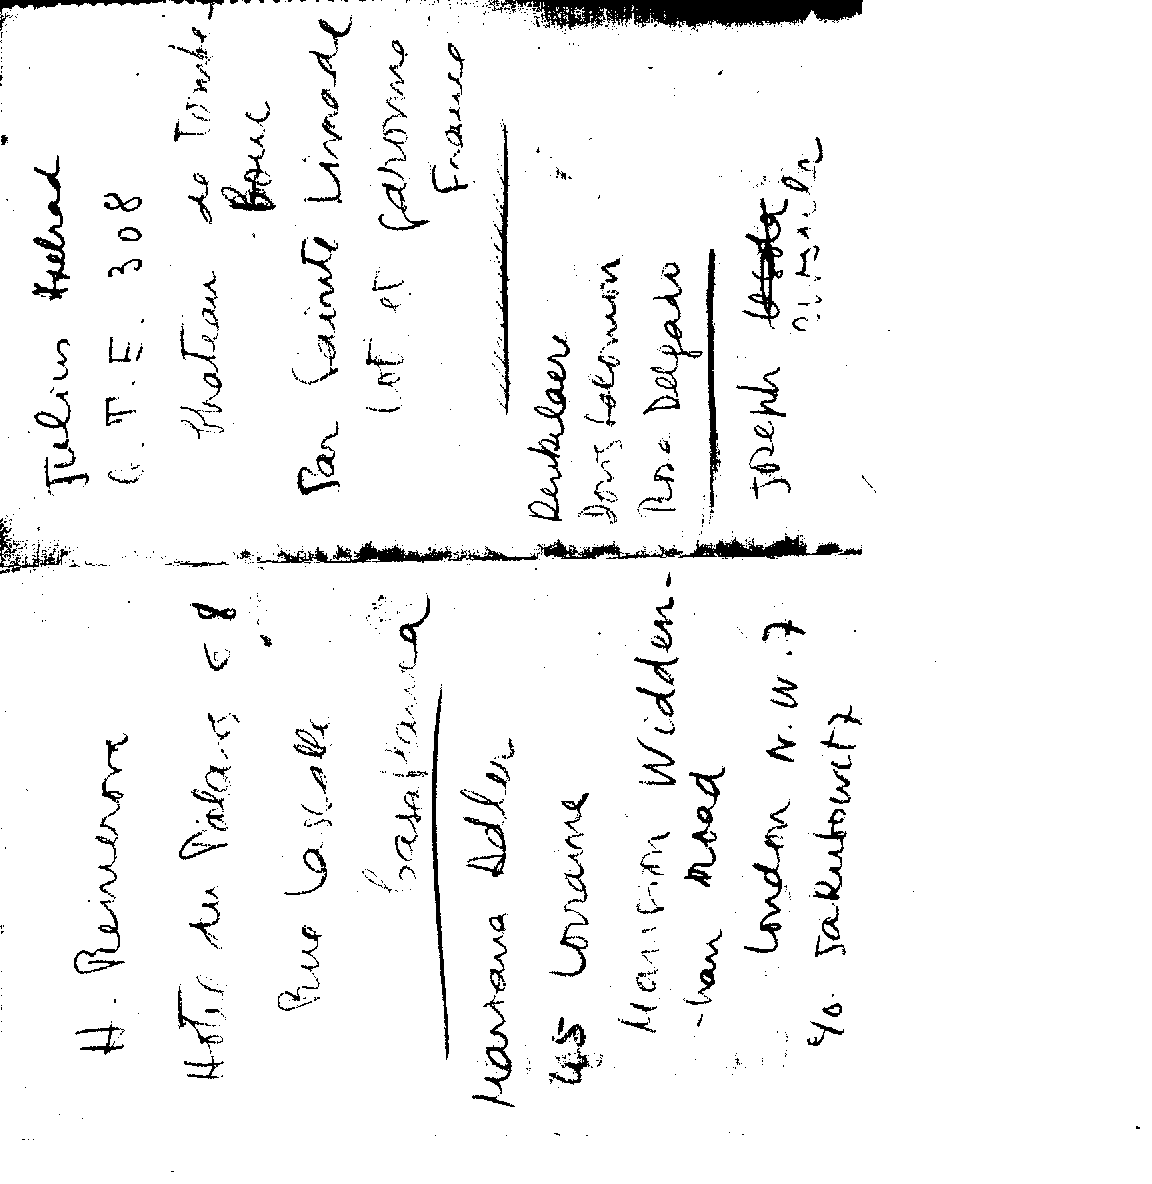 H. Reinerova
Hotel du Palais 58
Rue Lascelle
Casablanca
Mariana Adler
45 Lorraine
Mansion Widden-
-ham Road
London N.W.7
c/o. Jakubowitz
Julius
G. T. E. 308
Chateau de Tombe-
Bouc
Par Sainte Livrade
Lot et Garonne
France
Renkelaere
Doris Salomon
Rosa Delgado
Joseph